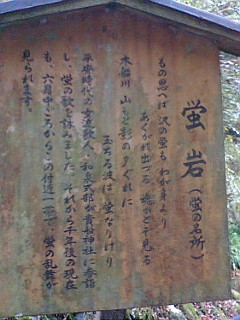 蛍岩（蛍の名所）
もの思へば 沢の蛍も わが身より
あくがれ出づる 魂かとぞ見る
木船川 山もと影の夕ぐれに
玉ちる波は 蛍なりけり
平安時代の女流歌人、和泉式部が貴船神社に参詣
し、蛍の歌を詠みました。それから千年後の現在
も、六月中ごろからこの付近一帯で、蛍の乱舞が
見られます。